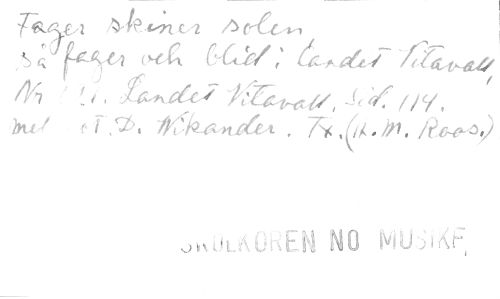 Fager skiner solen,
så fager och blid i landet Vitavall,
Nr Landet Vitavall. Sid. 114.
mel D. Wikander. Tx. (K. M. Roos.)
KOREN NO MUSIKF,